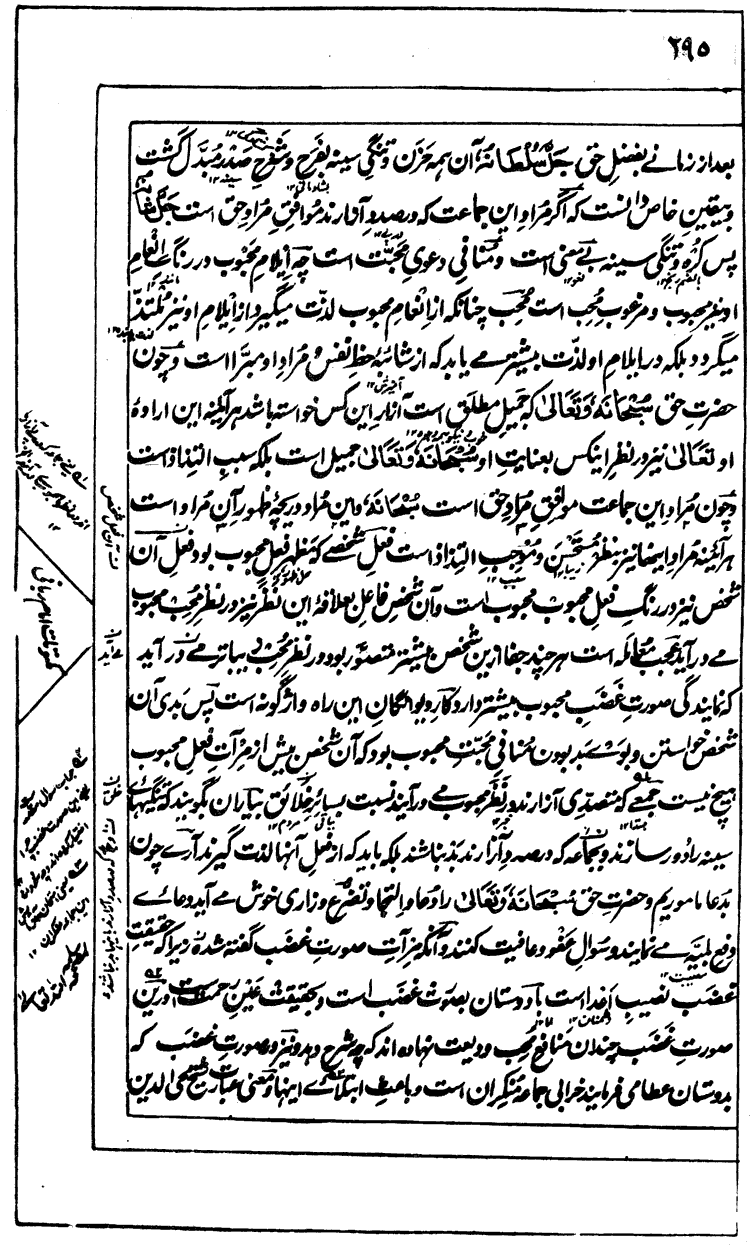 ٢٩٥
بعد از زمانے بفضلِ حق جَلَّ سُلْطَانُهٗ آن ہمہ حزن و تنگیِ سینہ بفرح و شرحِ صدر مُبدّل گشت
و بیقینِ خاص دانست کہ اگر مُرادِ این جماعت کہ درصددِ آزارند موافقِ مُرادِ حق است جَلَّ شانہ
پس کُرہ و تنگیِ سینہ بے معنی است و مُنافیِ دعویِ محبّت است چہ اِیلامِ محبوب در رنگِ اِنعامِ
او نیز محبوب و مرغوبِ مُحِب است مُحِّب چنانکہ از اِنعامِ محبوب لذّت میگیرد از اِیلامِ او نیز مُلتذّ
میگردد بلکہ در ایلامِ او لذّت بیشتر مے یابد کہ از شائبۂ حظِّ نفس و مُرادِ او مبرّا است و چون
حضرتِ حق سُبْحَانَهٗ وَتَعَالٰی کہ جمیلِ مطلق است آزارِ این کس خواستہ باشد ہر آئینہ این ارادۂ
او تعالیٰ نیز در نظرِ اینکس بعنایتِ او سُبْحَانَهٗ وَتَعَالٰی جمیل است بلکہ سببِ التذاذ است
و چون مُرادِ این جماعت موافقِ مُرادِ حق است سُبْحَانَهٗ و این مُراد دریچۂ ظہورِ آن مُراد است
ہر آئینہ مُرادِ اینہا نیز بنظر مُستحسن و مُوجبِ التذاذ است فعلِ شخصے کہ مَظہرِ فعلِ محبوب بود فعلِ آن
شخص نیز در رنگِ فعلِ محبوب محبوب است و آن شخصِ فاعل بعلاقۂ این نظر نیز در نظرِ مُحِب محبوب
مے درآید عجب مُعاملہ است ہر چند جفا ازین شخص بیشتر متصوّر بود در نظرِ مُحِب زیباتر مے درآید
کہ نمایندگیِ صورتِ غَضَبِ محبوب بیشتر دارد کارِ دیوانگانِ این راہ واژگونہ است پس بدیِ آن
شخص خواستن و بوے بد بودن مُنافیِ محبّتِ محبوب بود کہ آن شخص بیش از مِرآتِ فعلِ محبوب
ہیچ نیست جمعے کہ متصدّیِ آزارند در نظر محبوب مے درآیند نسبت بسائرِ خلائق بیاران گویند کہ تنگیہاے
سینہ را دور سازند و بجماعہ کہ درصددِ آزارند بد نباشند بلکہ باید کہ از فعلِ آنہا لذت گیرند آرے چون
بدعا ماموریم و حضرتِ حق سُبْحَانَهٗ وَتَعَالٰی را دعا و التجا و تضرّع و زاری خوش مے آید دعاے
دفعِ بلیّہ مے نمایند و سوالِ عفو و عافیت کنند و آنکہ مِرآتِ صورتِ غضب گفتہ شدہ زیرا کہ حقیقتِ
غضب نصیبِ اعدا است با دوستان بصورت غضب است و بحقیقت عینِ رحمت است درین
صورتِ غضب چندان منافعِ مُحِب ودیعت نہادہ اند کہ چہ شرح دہد و نیز در صورتِ غضب کہ
بدوستان عطا می فرمایند خرابیِ جماعۂ مُنکران است و باعثِ ابتلاے اینہا و معنیِ عبارتِ شیخ محی الدین
مکتوبات امام ربانی